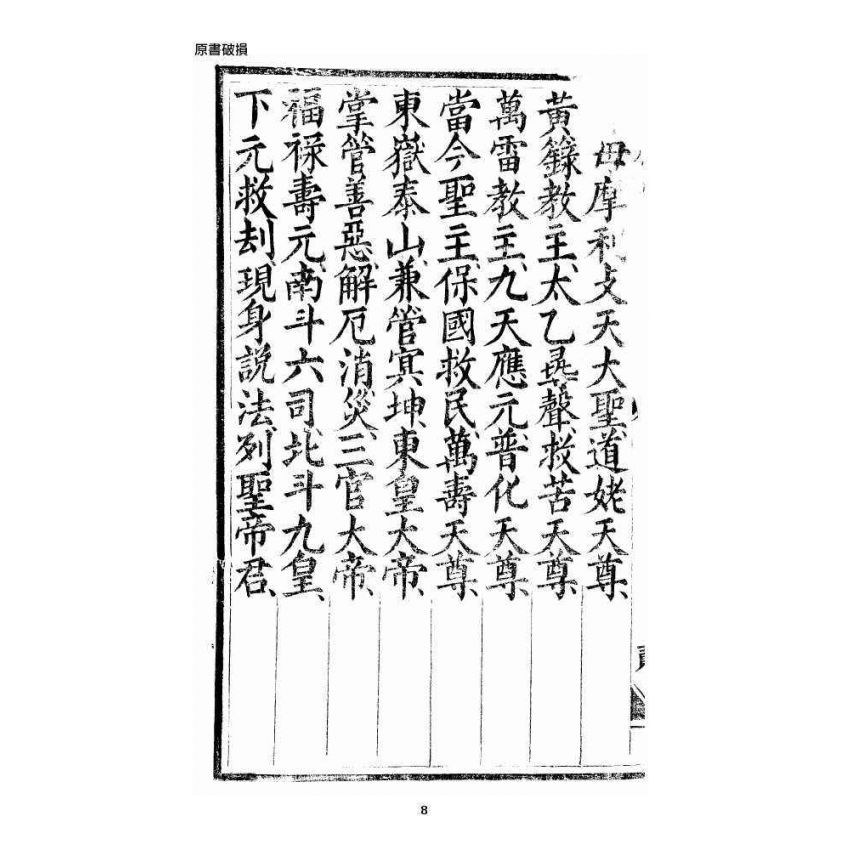 原書破損
母摩利攴天大聖道姥天尊、
黃籙教主、太乙㝷聲、救苦天尊、
萬雷教主、九天應元、普化天尊、
當今聖主、保國救民、萬壽天尊、
東嶽泰山、兼管冥坤、東皇大帝、
掌管善惡、解厄消災、三官大帝、
福祿壽元、南斗六司、北斗九皇、
下元救刦、現身說法、列聖帝君、
8